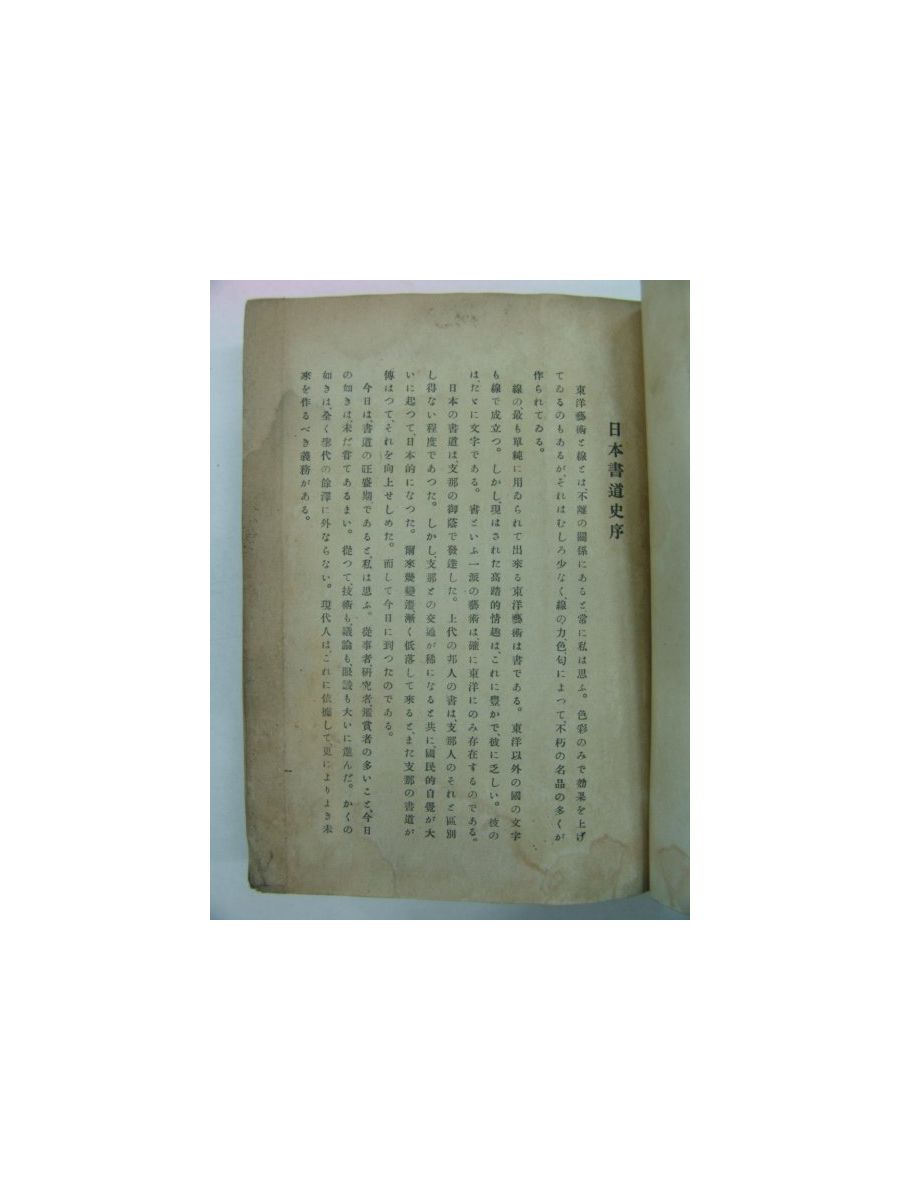 日本書道史序
東洋藝術と線とは、不離の關係にあると常に私は思ふ。色彩のみで効果を上げ
てゐるのもあるが、それはむしろ少なく、線の力、色、匂によつて、不朽の名品の多くが
作られてゐる。
線の、最も單純に用ゐられて出來る東洋藝術は書である。東洋以外の國の文字
も線で成立つ。しかし、現はされた高踏的情趣は、これに豊かで、彼に乏しい。彼の
は、たゞに文字である。書といふ一派の藝術は、確に東洋にのみ存在するのである。
日本の書道は、支那の御蔭で發達した。上代の邦人の書は、支那人のそれと區別
し得ない程度であつた。しかし、支那との交通が稀になると共に、國民的自覺が大
いに起つて、日本的になつた。爾來幾變遷漸く低落して來ると、また支那の書道が
傳はつて、それを向上せしめた。而して今日に到つたのである。
今日は、書道の旺盛期であると、私は思ふ。從事者、硏究者、鑑賞者の多いこと、今日
の如きは、未だ甞てあるまい。從つて、技術も、議論も、眼識も大いに進んだ。かくの
如きは、全く聖代の餘澤に外ならない。現代人は、これに依據して更によりよき未
來を作るべき義務がある。